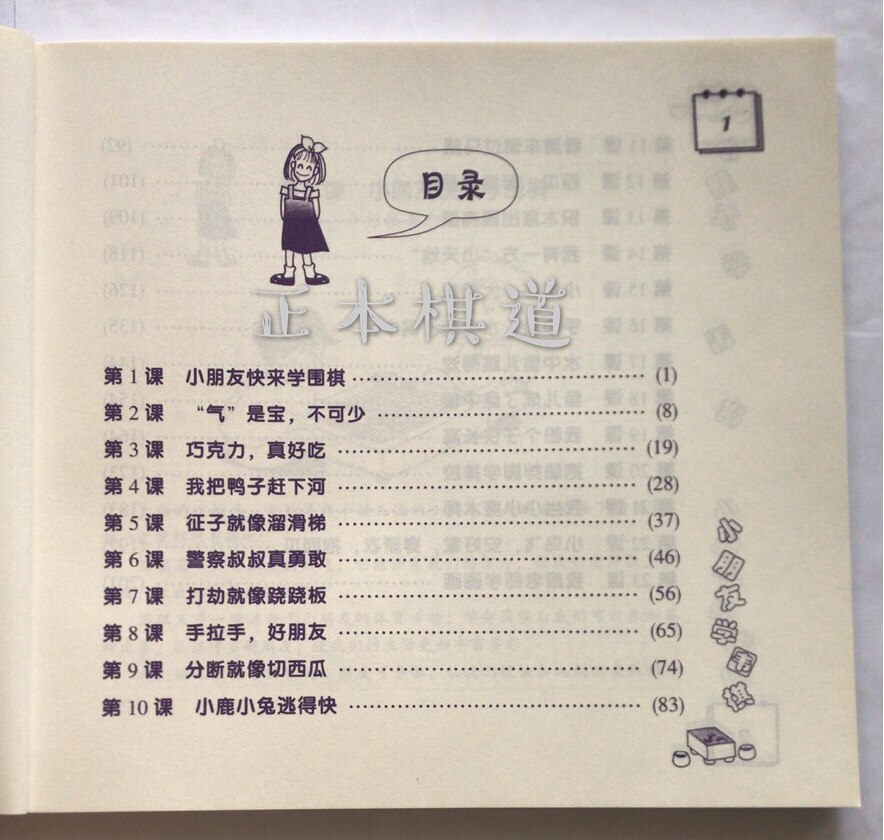 1
目录
正本棋道
第1课 小朋友快来学围棋 ……………………………… (1)
第2课 “气”是宝，不可少 ……………………………… (8)
第3课 巧克力，真好吃 ……………………………… (19)
第4课 我把鸭子赶下河 ……………………………… (28)
第5课 征子就像溜滑梯 ……………………………… (37)
第6课 警察叔叔真勇敢 ……………………………… (46)
第7课 打劫就像跷跷板 ……………………………… (56)
第8课 手拉手，好朋友 ……………………………… (65)
第9课 分断就像切西瓜 ……………………………… (74)
第10课 小鹿小兔逃得快 ……………………………… (83)
小朋友学围棋